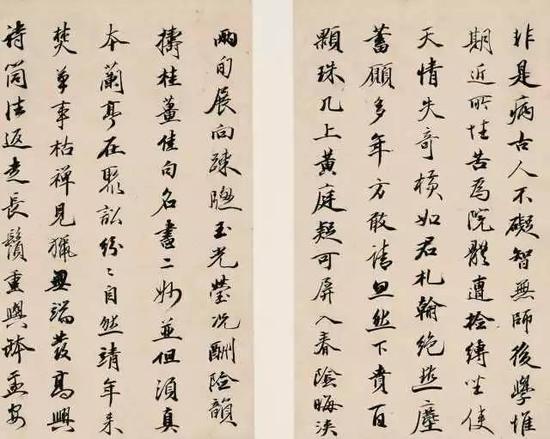 非是病古人不礙智無師後學惟
期近所性苦為院體遭捻縛坐使
天情失奇橫如君札翰絕塵
蓄願多年方敢請忽然下賁百
顆珠几上黃庭疑可屏入春陰晦浹
兩旬展向疎牕玉光瑩況酬險韻
擣桂薑佳句名書二妙並但須真
本蘭亭在聚訟紛〻自然靖年來
焚草事枯禪見獵無端發高興
詩筒往返走長鬚重與鉢盂安